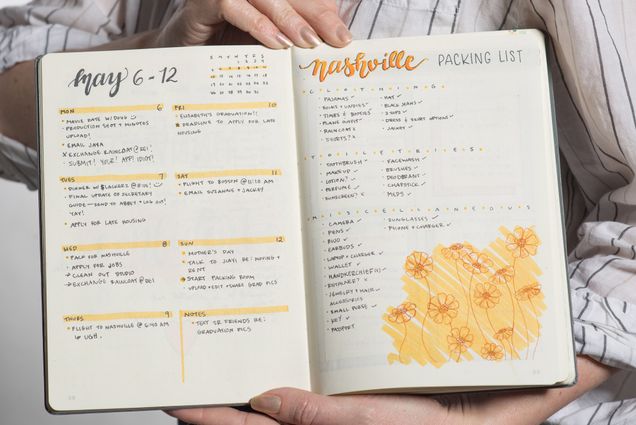 may 6-12
S M T W T F S
MON 6
• MOVIE DATE W/DOUG
• PRODUCTION DEPT + MINUTES
UPLOAD!
• EMAIL JARA
X EXCHANGE RAINCOAT @REI!
• SUBMIT! YOUR! APP! IDIOT!
FRI 10
• ELISABETH'S GRADUATION!!
• DEADLINE TO APPLY FOR LATE
HOUSING
TUES 7
• DINNER W/ @REI!
• FINAL UPDATE OF SECRETARY
GUIDE—SEND TO ABBEY + LOG OUT!
'YAY!
• APPLY FOR LATE HOUSING
SAT 11
• FLIGHT TO BOSTON @11:10 AM
• EMAIL SUZANNE + JACKEY
WED 8
• PACK FOR NASHVILLE
• APPLY FOR JOBS
→ CLEAN OUT STUDIO
→ EXCHANGE RAINCOAT @REI
SUN 12
• MOTHER'S DAY
• TALK TO JAYLI RE: MOVING +
RENT
START PACKING ROOM
• UPLOAD + EDIT + SHARE GRAD PICS
THURS 9
• FLIGHT TO NASHVILLE @ 6:40 AM
UGH.
NOTES
• TEXT FRIENDS RE:
GRADUATION PICS
nashville PACKING LIST
CLOTHING
• PAJAMAS ✓
• SOCKS + UNDIES ✓
• TSHIRTS & BOTTOMS ✓
• PLANE OUTFIT ✓
• RAINCOAT X
• SHORTS? X
• HAT ✓
• BLACK JEANS ✓
• DRESS & SHIRT OPTIONS ✓
• JACKET ✓
TOILETRIES
• TOOTHBRUSH ✓
• MAKEUP ✓
• LOTION?
• PERFUME ✓
• SUNSCREEN?
• FACEWASH ✓
• BRUSHES ✓
• DEODORANT ✓
• CHAPSTICK ✓
• MEDS ✓
MISCELLANEOUS
• CAMERA ✓
• PENS ✓
• BUJO ✓
• EARBUDS ✓
• LAPTOP + CHARGER ✓
• WALLET ✓
• HANDKERCHIEF(S) ✓
• JEWELRY + HAIR
ACCESSORIES
• SMALL PURSE ✓
• KEY ✓
• PASSPORT
• SUNGLASSES ✓
• PHONE + CHARGER ✓